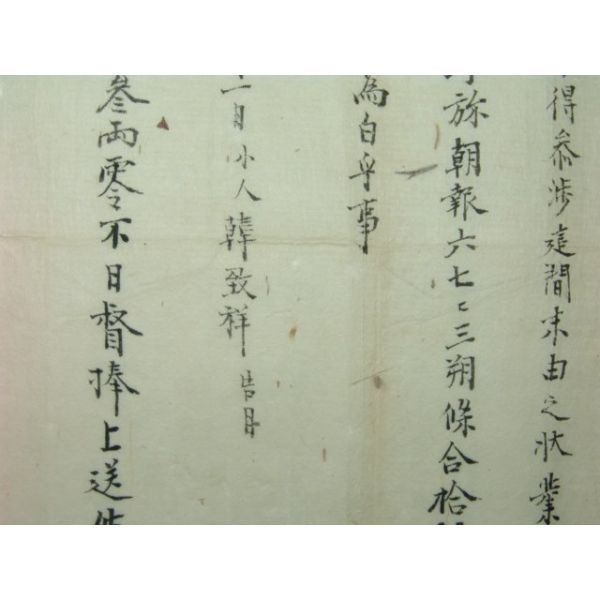 得參涉這間末由之狀業
旀朝報六七〻三朔條合拾
爲白乎事
一日小人韓致祥告目
叄兩零不日督捧上送